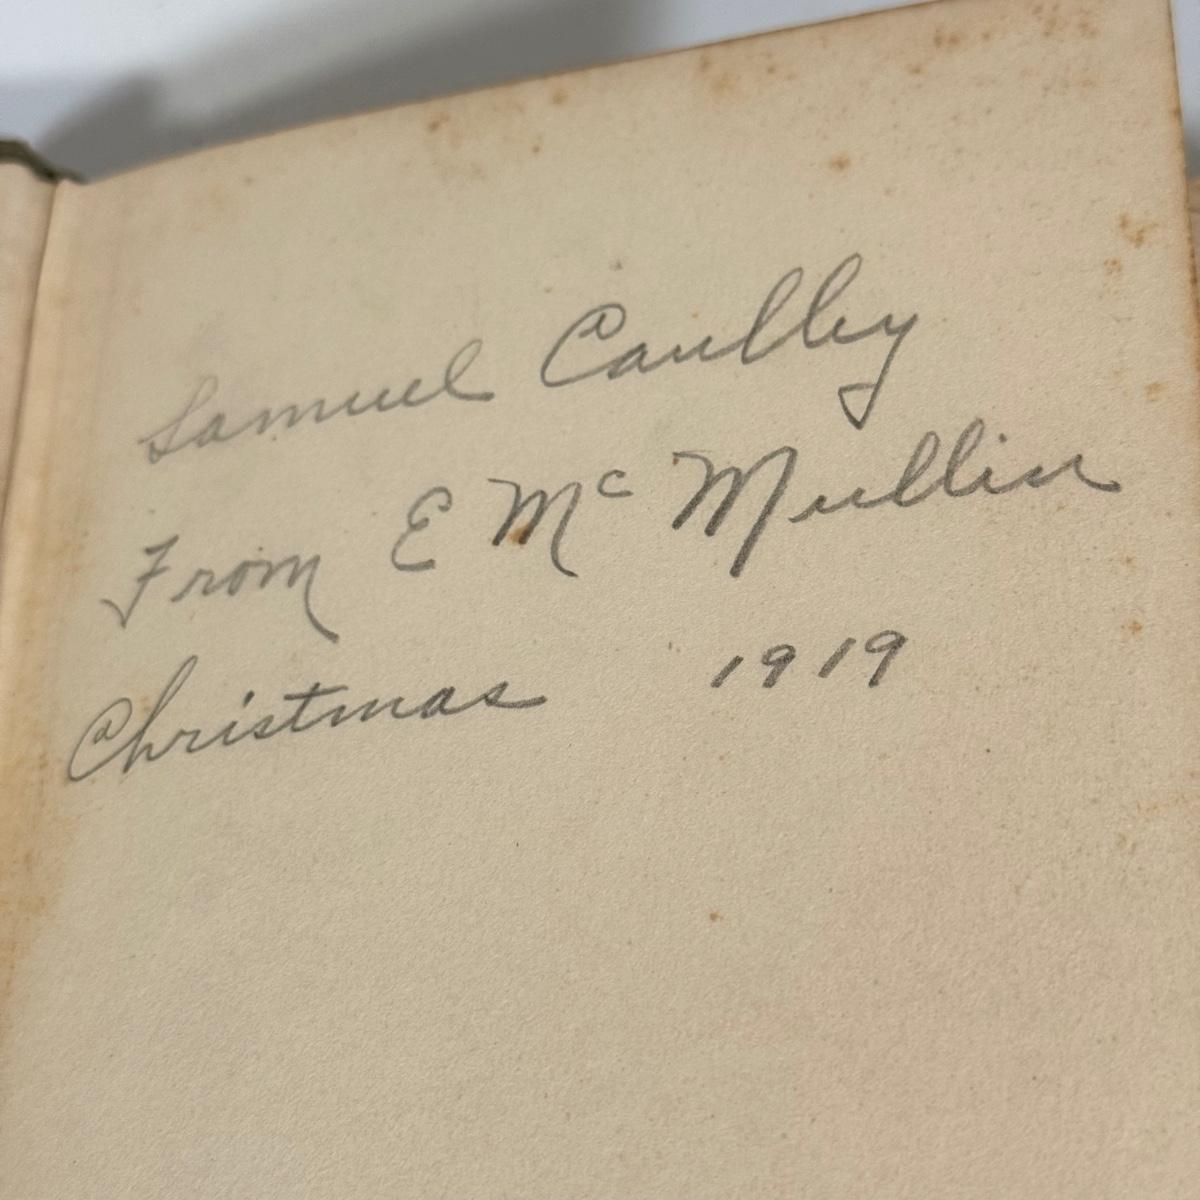 Samuel Caulley
From E Mc Mullin
Christmas 1919